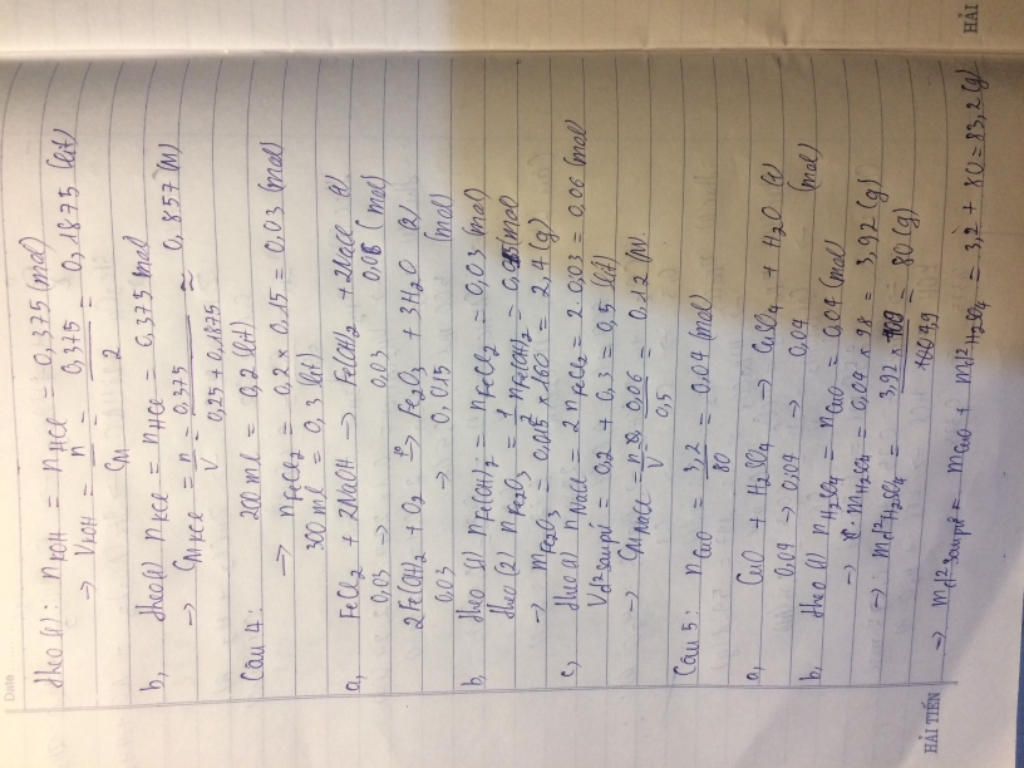 Date
theo (1): nKOH = nHCl = 0,375 (mol)
→ VKOH = n/CM = 0,375/2 = 0,1875 (lít)
b, theo (1) nKCl = nHCl = 0,375 mol
→ CM KCl = n/V = 0,375/0,25 + 0,1875 ≈ 0,857 (M)
Câu 4: 200 ml = 0,2 (lít)
→ nFeCl2 = 0,2 × 0,15 = 0,03 (mol)
300 ml = 0,3 (lít)
a, FeCl2 + 2NaOH → Fe(OH)2 + 2NaCl (1)
0,03 → 0,03 0,06 (mol)
2Fe(OH)2 + O2 →t° Fe2O3 + 3H2O (2)
0,03 → 0,015 (mol)
b, theo (1) nFe(OH)2 = nFeCl2 = 0,03 (mol)
theo (2) nFe2O3 = 1/2 nFe(OH)2 = 0,015 (mol)
→ mFe2O3 = 0,015 × 160 = 2,4 (g)
c, theo (1) nNaCl = 2 nFeCl2 = 2.0,03 = 0,06 (mol)
Vd2 sau pứ = 0,2 + 0,3 = 0,5 (lít)
→ CM NaCl = n/V = 0,06/0,5 = 0,12 (M).
Câu 5: nCuO = 3,2/80 = 0,04 (mol)
a, CuO + H2SO4 → CuSO4 + H2O (1)
0,04 → 0,04 → 0,04 (mol)
b, theo (1) nH2SO4 = nCuO = 0,04 (mol)
→ mH2SO4 = 0,04 × 98 = 3,92 (g)
→ md2 H2SO4 = 3,92 × 100/4,9 = 80 (g)
→ md2 sau pứ = mCuO + md2 H2SO4 = 3,2 + 80 = 83,2 (g)
HẢI TIẾN
HẢI